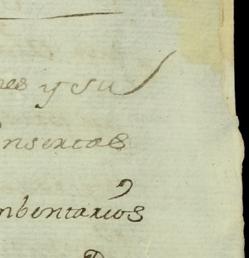 es y su
nsertas
nbentarios